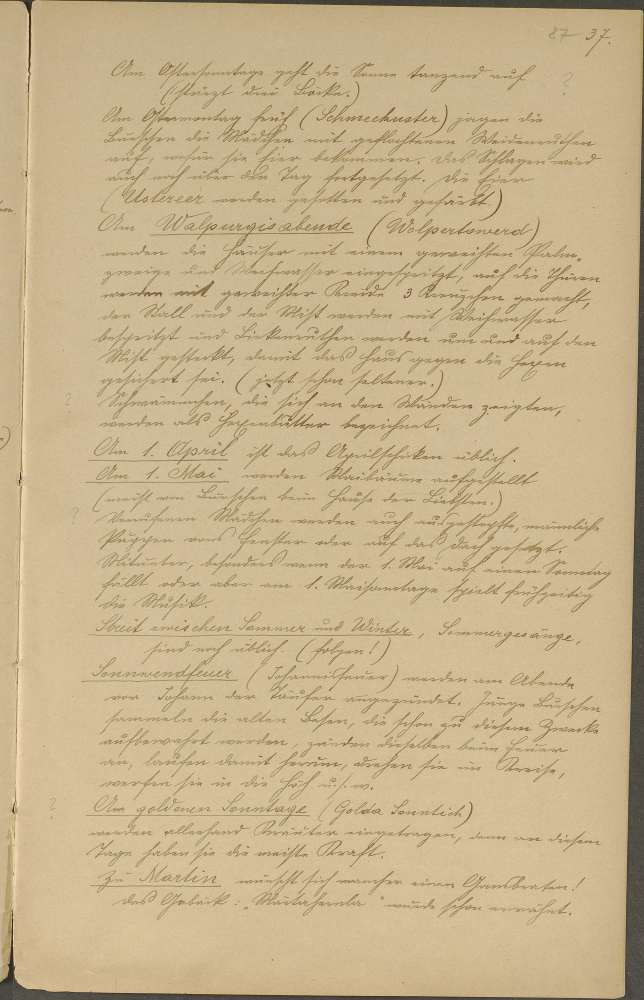 87 37.
Am Ostersonntage geht die Sonne tanzend auf ?
(stürzt drei Böcke.)
Am Ostermontag früh (Schmeckuster) jagen die
Burschen die Mädchen mit geflochtenen Weidenruthen
auf, wofür sie Eier bekommen. Das Schlagen wird
auch noch über den Tag fortgesetzt. Die Eier
(Ustereer werden gesotten und gefärbt)
Am Walpurgisabende (Wolpertowerd)
werden die Häuser mit einem geweihten Palm-
zweige und Weihwasser eingespritzt, auf die Thüren
werden mit geweihter Kreide 3 Kreuzchen gemacht,
der Stall und der Mist werden mit Weihwasser
bespritzt und Birkenruthen werden um und auf den
Mist gesteckt, damit das Haus gegen die Hexen
gesichert sei. (jetzt schon seltener.)
? Schwämmchen, die sich an den Wänden zeigten,
werden als Hexenbutter bezeichnet.
Am 1. April ist das Aprilschicken üblich.
Am 1. Mai werden Maibäume aufgestellt
(meist von Burschen beim Hause der Liebsten.)
? Verrufenen Mädchen werden auch ausgestopfte, männliche
Puppen vors Fenster oder auf das Dach gesetzt.
Mitunter, besonders wenn der 1. Mai auf einen Sonntag
fällt oder aber am 1. Maisonntage spielt frühzeitig
die Musik.
Streit zwischen Sommer und Winter, Sommergesänge,
sind noch üblich. (folgen!)
Sonnwendfeuer (Johannisfeuer) werden am Abende
vor Johann der Täufer angezündet. Junge Burschen
sammeln die alten Besen, die schon zu diesem Zwecke
aufbewahrt werden, zünden dieselben beim Feuer
an, laufen damit herum, drehen sie im Kreise,
werfen sie in die Höh u. s. w.
? Am goldenen Sonntage (Golda Sonntich)
werden allerhand Kräuter eingetragen, denn an diesem
Tage haben sie die meiste Kraft.
Zu Martin wünscht sich mancher einen Gansbraten!
das Gebäck: " " wurde schon erwähnt.